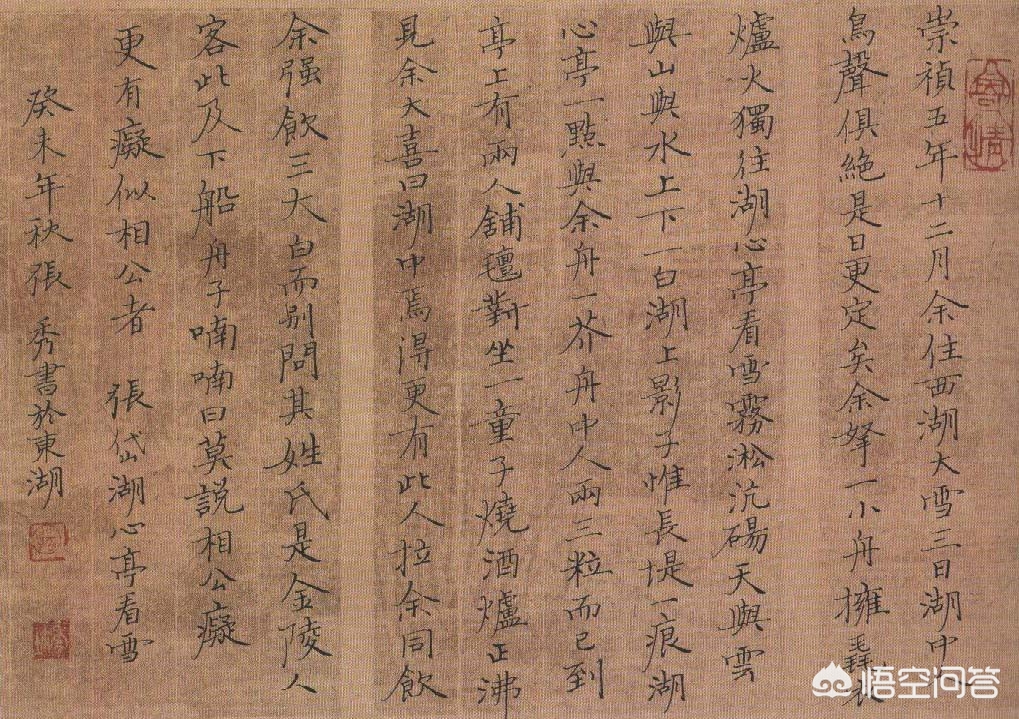 寄情
崇禎五年十二月余住西湖大雪三日湖中人
鳥聲俱絕是日更定矣余拏一小舟擁毳衣
爐火獨往湖心亭看雪霧淞沆碭天與雲
與山與水上下一白湖上影子惟長堤一痕湖
心亭一點與余舟一芥舟中人兩三粒而已到
亭上有兩人舖氈對坐一童子燒酒爐正沸
見余大喜曰湖中焉得更有此人拉余同飲
余强飲三大白而别問其姓氏是金陵人
客此及下船舟子喃喃曰莫說相公癡
更有癡似相公者 張岱湖心亭看雪
癸未年秋張秀書於東湖
悟空问答